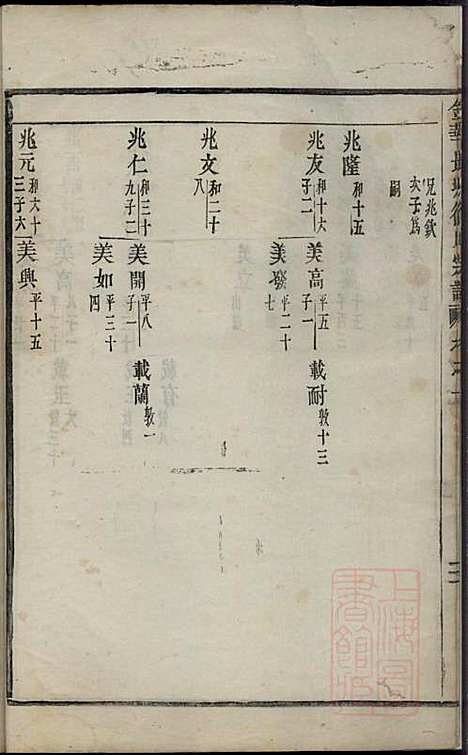 兄兆欽
次子為
嗣
兆隆 和十五
兆友 和十六
子二
美高 平五
子一
載耐 敦十三
美發 平二十
七
兆文 和二十
八
兆仁 和三十
九子二
美開 平八
子一
載蘭 敦一
美如 平三十
四
兆元 和六十
三子六
美興 平十五
上海圖書館藏